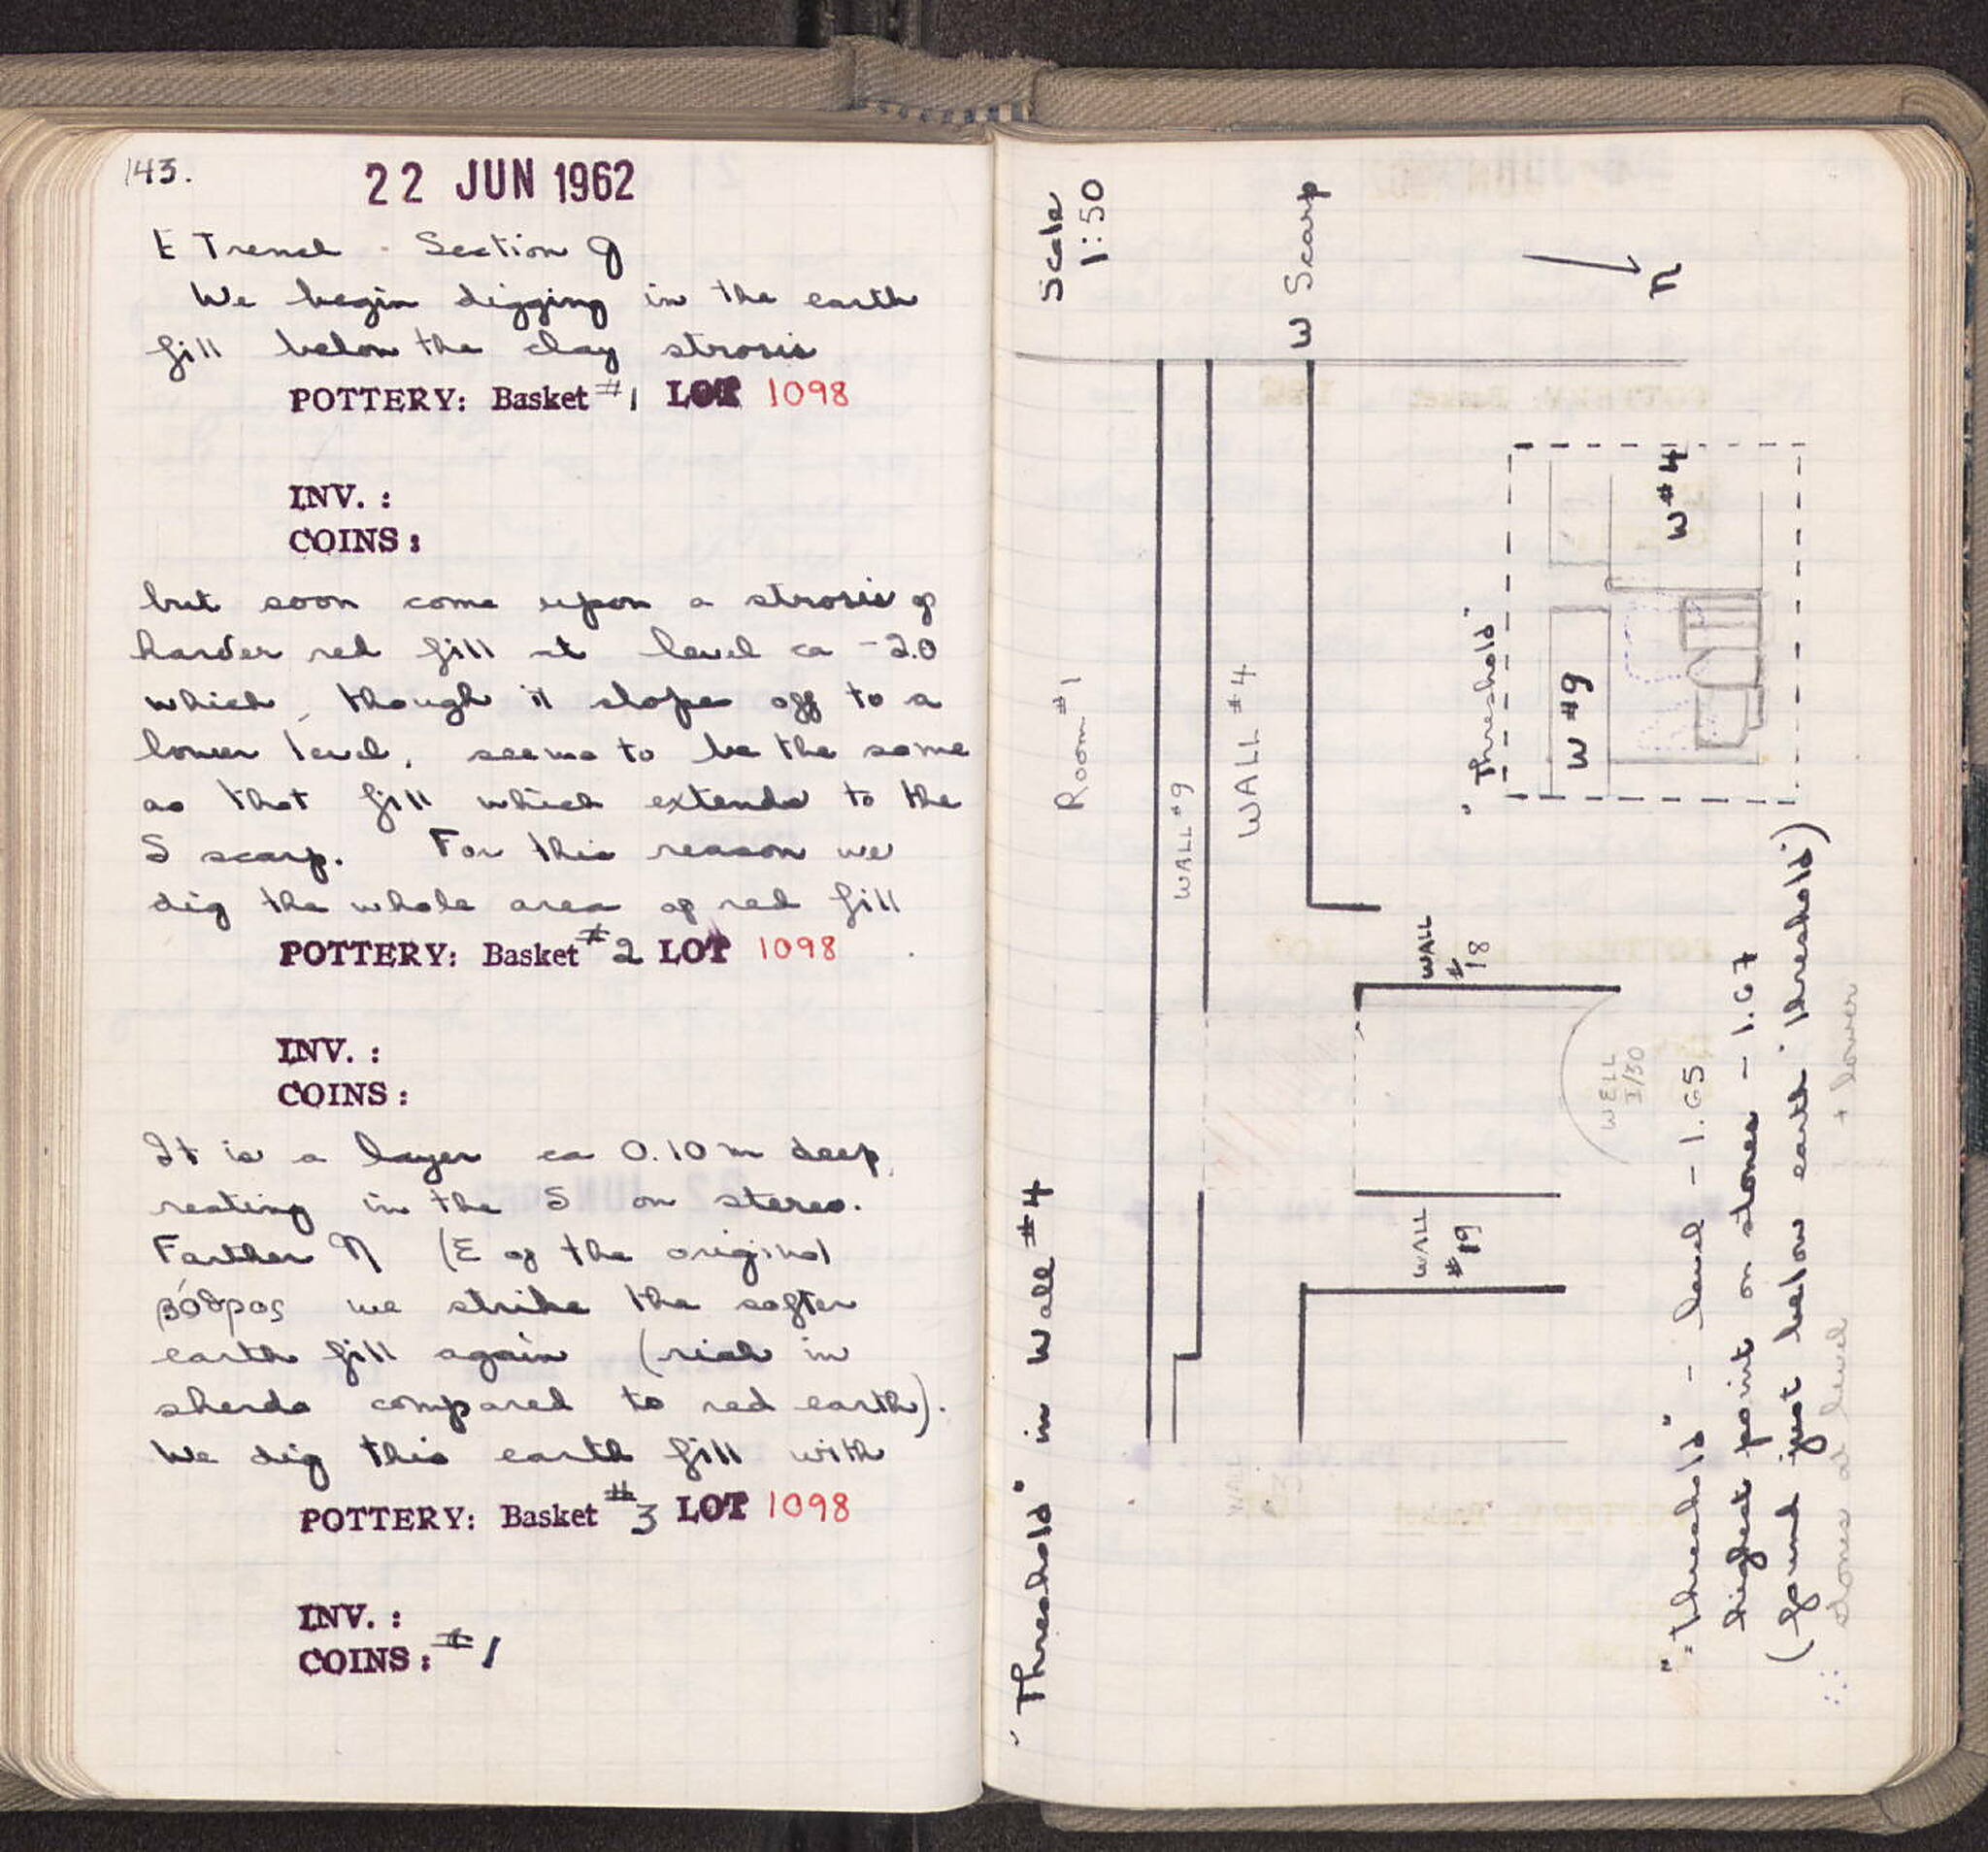 143.
22 JUN 1962
E Trench - Section J
We begin digging in the earth
fill below the clay strosis
POTTERY: Basket #1 LOT 1098
INV. :
COINS :
but soon come upon a strosis of
harder red fill at level ca -2.0
which, though it slopes off to a
lower level, seems to be the same
as that fill which extends to the
S scarp. For this reason we
dig the whole area of red fill
POTTERY: Basket #2 LOT 1098
INV. :
COINS :
It is a layer ca 0.10 m deep,
resting in the S on stereo.
Farther N (E of the original
βόθρος we strike the softer
earth fill again (rich in
sherds compared to red earth).
We dig this earth fill with
POTTERY: Basket #3 LOT 1098
INV. :
COINS : #1
"Threshold" in Wall #4
Scale
1:50
Room #1
WALL #9
WALL #4
W Scarp
N
"Threshold"
W #9
W #4
WALL
#18
WELL
I/30
WALL
#19
WALL
3
"Threshold" - level - 1.65
highest point on stones - 1.67
(found just below earth 'threshold')
∴ stones at level + lower